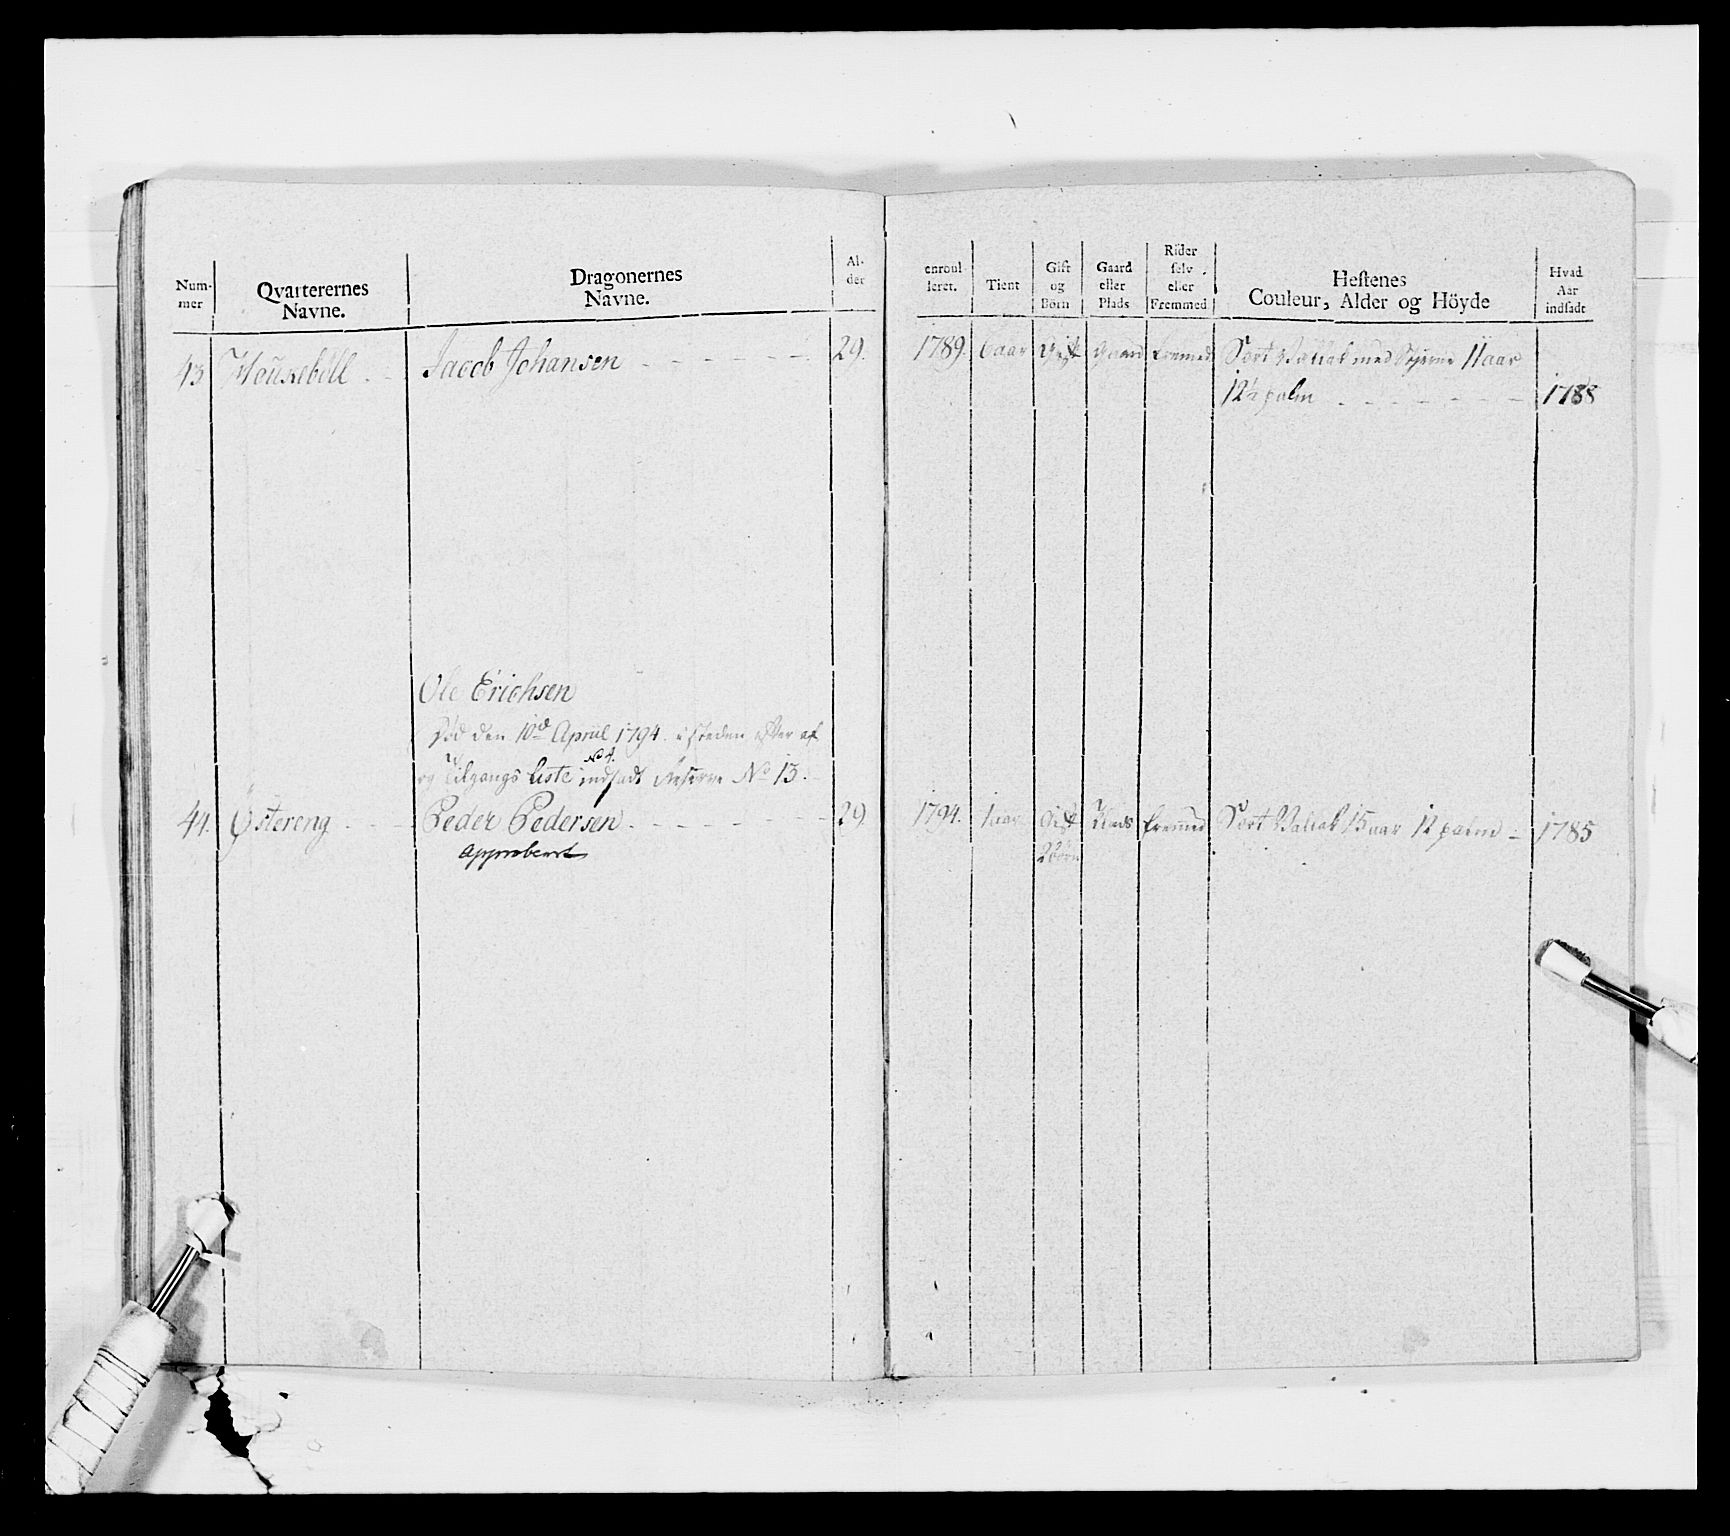 Num-
mer
Qvarterernes
Navne.
Dragonernes
Navne.
Al-
der
enroul-
leret.
Tient
Gift
og
Börn
Gaard
eller
Plads
Rider
selv
eller
Fremmed
Hestenes
Couleur, Alder og Höyde
Hvad
Aar
indsadt
43 Jacob Johansen 29. 1789. 6 aar Gift Gaard Fremed Sort Vallak med Stjerne 11 aar
12½ palm 1788
Ole Erichsen
Död den 10de Apriil 1794. i steden efter af
og Tilgangs Liste No 4. indsadt Reserve No 13.
44. Östereng Peder Pedersen 29 1794. 1 aar Gift Plads Fremmed Sort Vallak 15 aar 12 palm 1785
Approberet 2 börn